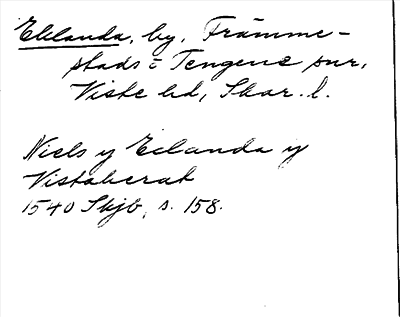 Eklanda, by, Främme-
stads o Tengene snr,
Viste hd, Skar. l.
Niels y Eclanda y
Vistahcrat
1540 Skjb, s. 158.